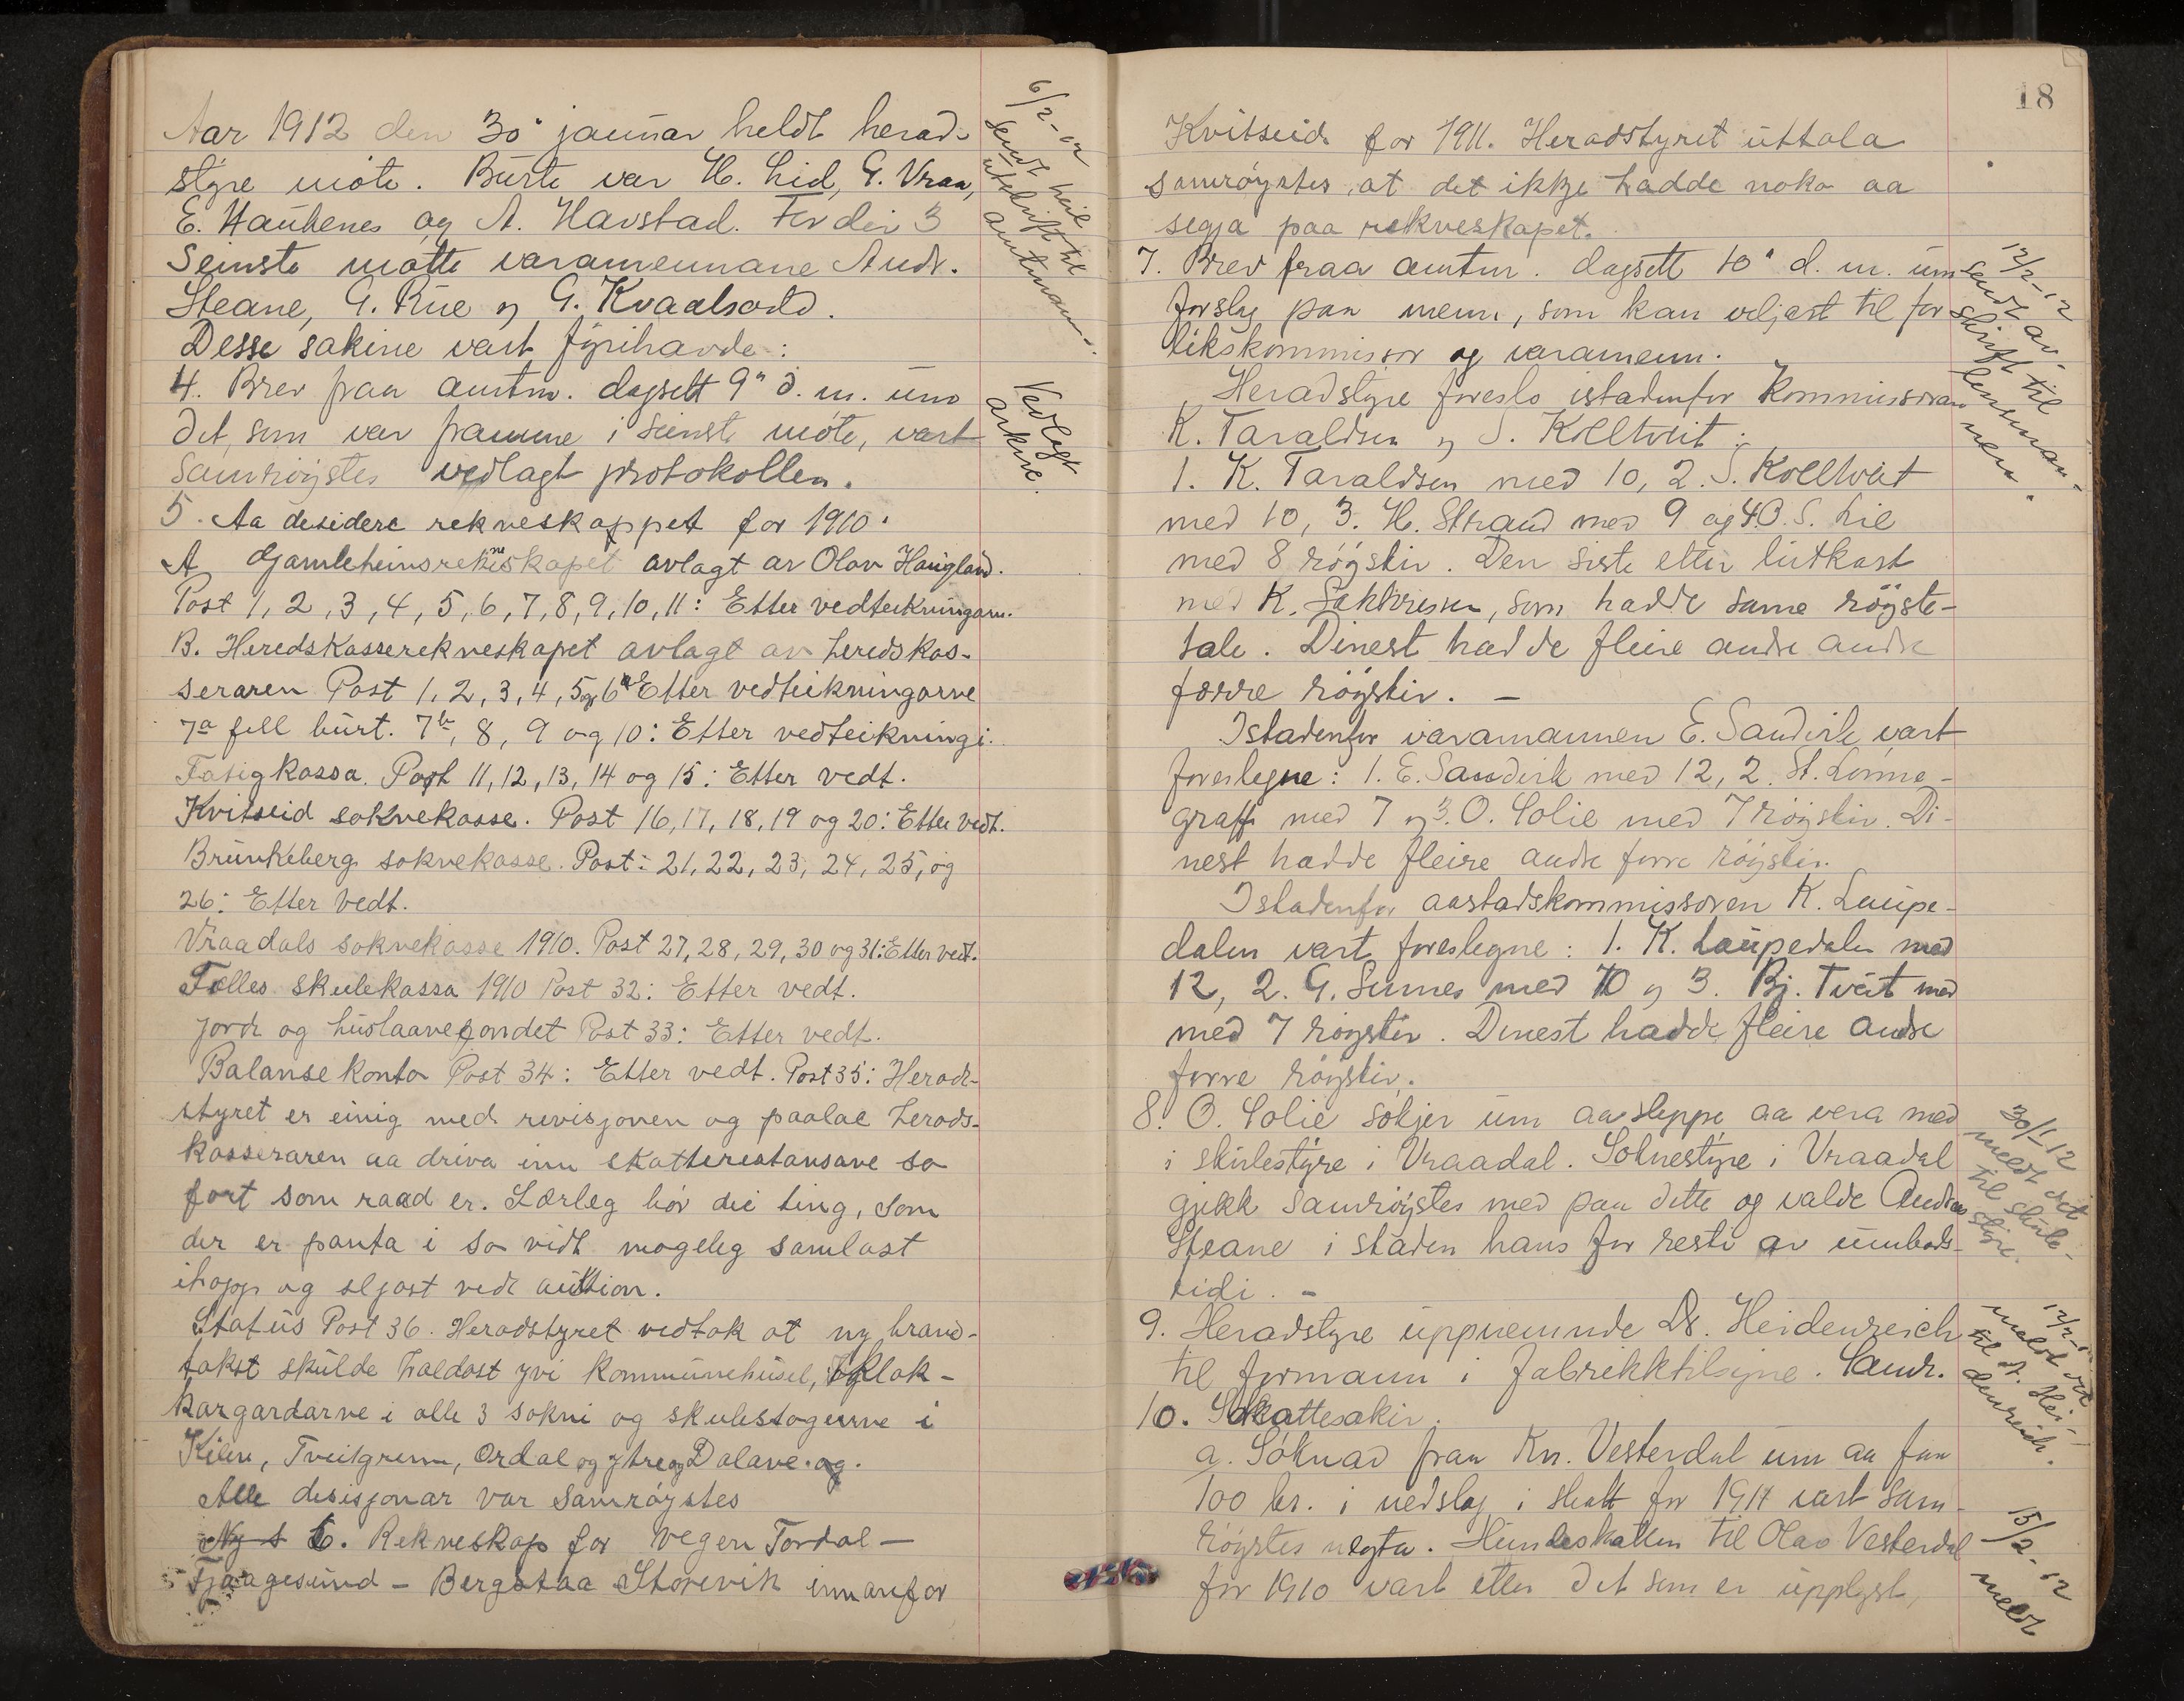 Aar 1912 den 30' januar heldt herad-
styre møte. Burte var H. Lid, G. Vraa,
E. Haukenes og A. Havstad. For dei 3
Seinste møtte varamennane Andr.
Steane, G. Rue og G. Kvaalsodd.
Desse sakine vart fyrihavde:
4. Brev fraa amtm. dagsett 9" d. m. um
det, som var framme i seinste møte, vart
samrøystes vedlagt protokollen.
5. Aa desidere rekneskappet for 1910.
A Gamleheimsrekneskapet avlagt av Olav Haugland.
Post 1, 2, 3, 4, 5, 6, 7, 8, 9, 10, 11: Etter vedteikningarne.
B. Heredskasserekneskapet avlagt av heredskas-
seraren Post 1, 2, 3, 4, 5 og 6 Etter vedteikningarne
7a fell burt. 7b, 8, 9 og 10: Etter vedteikningi.
Fatigkassa. Post 11, 12, 13, 14 og 15: Etter vedt.
Kvitseid soknekasse. Post 16, 17, 18, 19 og 20: Etter vedt.
Brunkeberg soknekasse. Post: 21, 22, 23, 24, 25, og
26: Etter vedt.
Vraadals soknekasse 1910. Post 27, 28, 29, 30 og 31: Etter vedt.
Felles skulekassa 1910 Post 32: Etter vedt.
Jord og huslaanefondet Post 33: Etter vedt.
Balanse konto Post 34: Etter vedt. Post 35: Herad-
styret er einig med revisjonen og paalae herads-
kasseraren aa driva inn skatterestansane so
fort som raad er. Særleg bør dei ting, som
der er panta i so vidt mogeleg samlast
ihopp og seljast ved auktion.
Status Post 36. Heradstyret vedtok at ny brand-
takst skulde haldast yvi kommunehuset, klok-
kargardarne i alle 3 sokni og skulestogurne i
Kilen, Tveitgrenn, Ordal og ytre og Dalane. og.
Alle desisjonar var samrøystes
Ny s 6. Rekneskap for vegen Tordal -
Fjaagesund - Bergstaa Storevik innanfor
6/2-12
Sendt
utskrift til
amtmann.
Vedlagt
arkive.
18
Kvitseid for 1911. Heradstyret uttala
samrøystes, at det ikkje hadde noko aa
segja paa rekneskapet.
7. Brev fraa amtm. dagsett 10" d. m. um
forslag paa menn, som kan veljast til for
likskommissor og varamenn.
Heradstyre foreslo istadenfor kommissoran
K. Taraldsen og S. Kolltveit:
1. K. Taraldsen med 10, 2. S. Kolltveit
med 10, 3. H. Strand med 9 og 4. O. S. Lie
med 8 røyster. Den siste etter lutkast
med K. , som hadde same røyste-
tale. Dinest hadde fleire andre andre
færre røystir. -
Istadenfor varamannen E. Sandvik vart
foreslegne: 1. E. Sandvik med 12, 2. St. Lønne-
graff med 7 og 3. O. Solie med 7 røystir. Di-
nest hadde fleire andre førre røystir.
Istadenfor aastadskommissoren K. Laupe-
dalen vart foreslegne: 1. K. Laupedalen med
12, 2. G. Sunnes med 10 og 3. Bj. Tveit med
med 7 røystir. Dinest hadde fleire andre
førre røystir.
8. O. Solie søkjer um aa sleppe aa vera med
i skulestyre i Vraadal. Soknestyre i Vraadal
gjekk samrøystes med paa dette og valde Andreas
Steane i staden hans for resti av umbods-
tidi. -
9. Heradstyre uppnemnde Dr. Heidenreich
til formann i fabrikktilsyne. Samr.
10. Skattesakir.
a. Søknad fraa Kn. Vesterdal um aa faa
100 kr. i nedslag i skatt for 1911 vart sam-
røystes negta. Hundeskatten til Olav Vesterdal
for 1910 vart etter det som er upplyst,
12/2-12
Sendt av-
skrift til
lensman-
nen.
30/11-12
meldt det
til skule-
styre.
12/2-12
meldt det
til dr. Hei-
denreich.
15/2-12
meldt